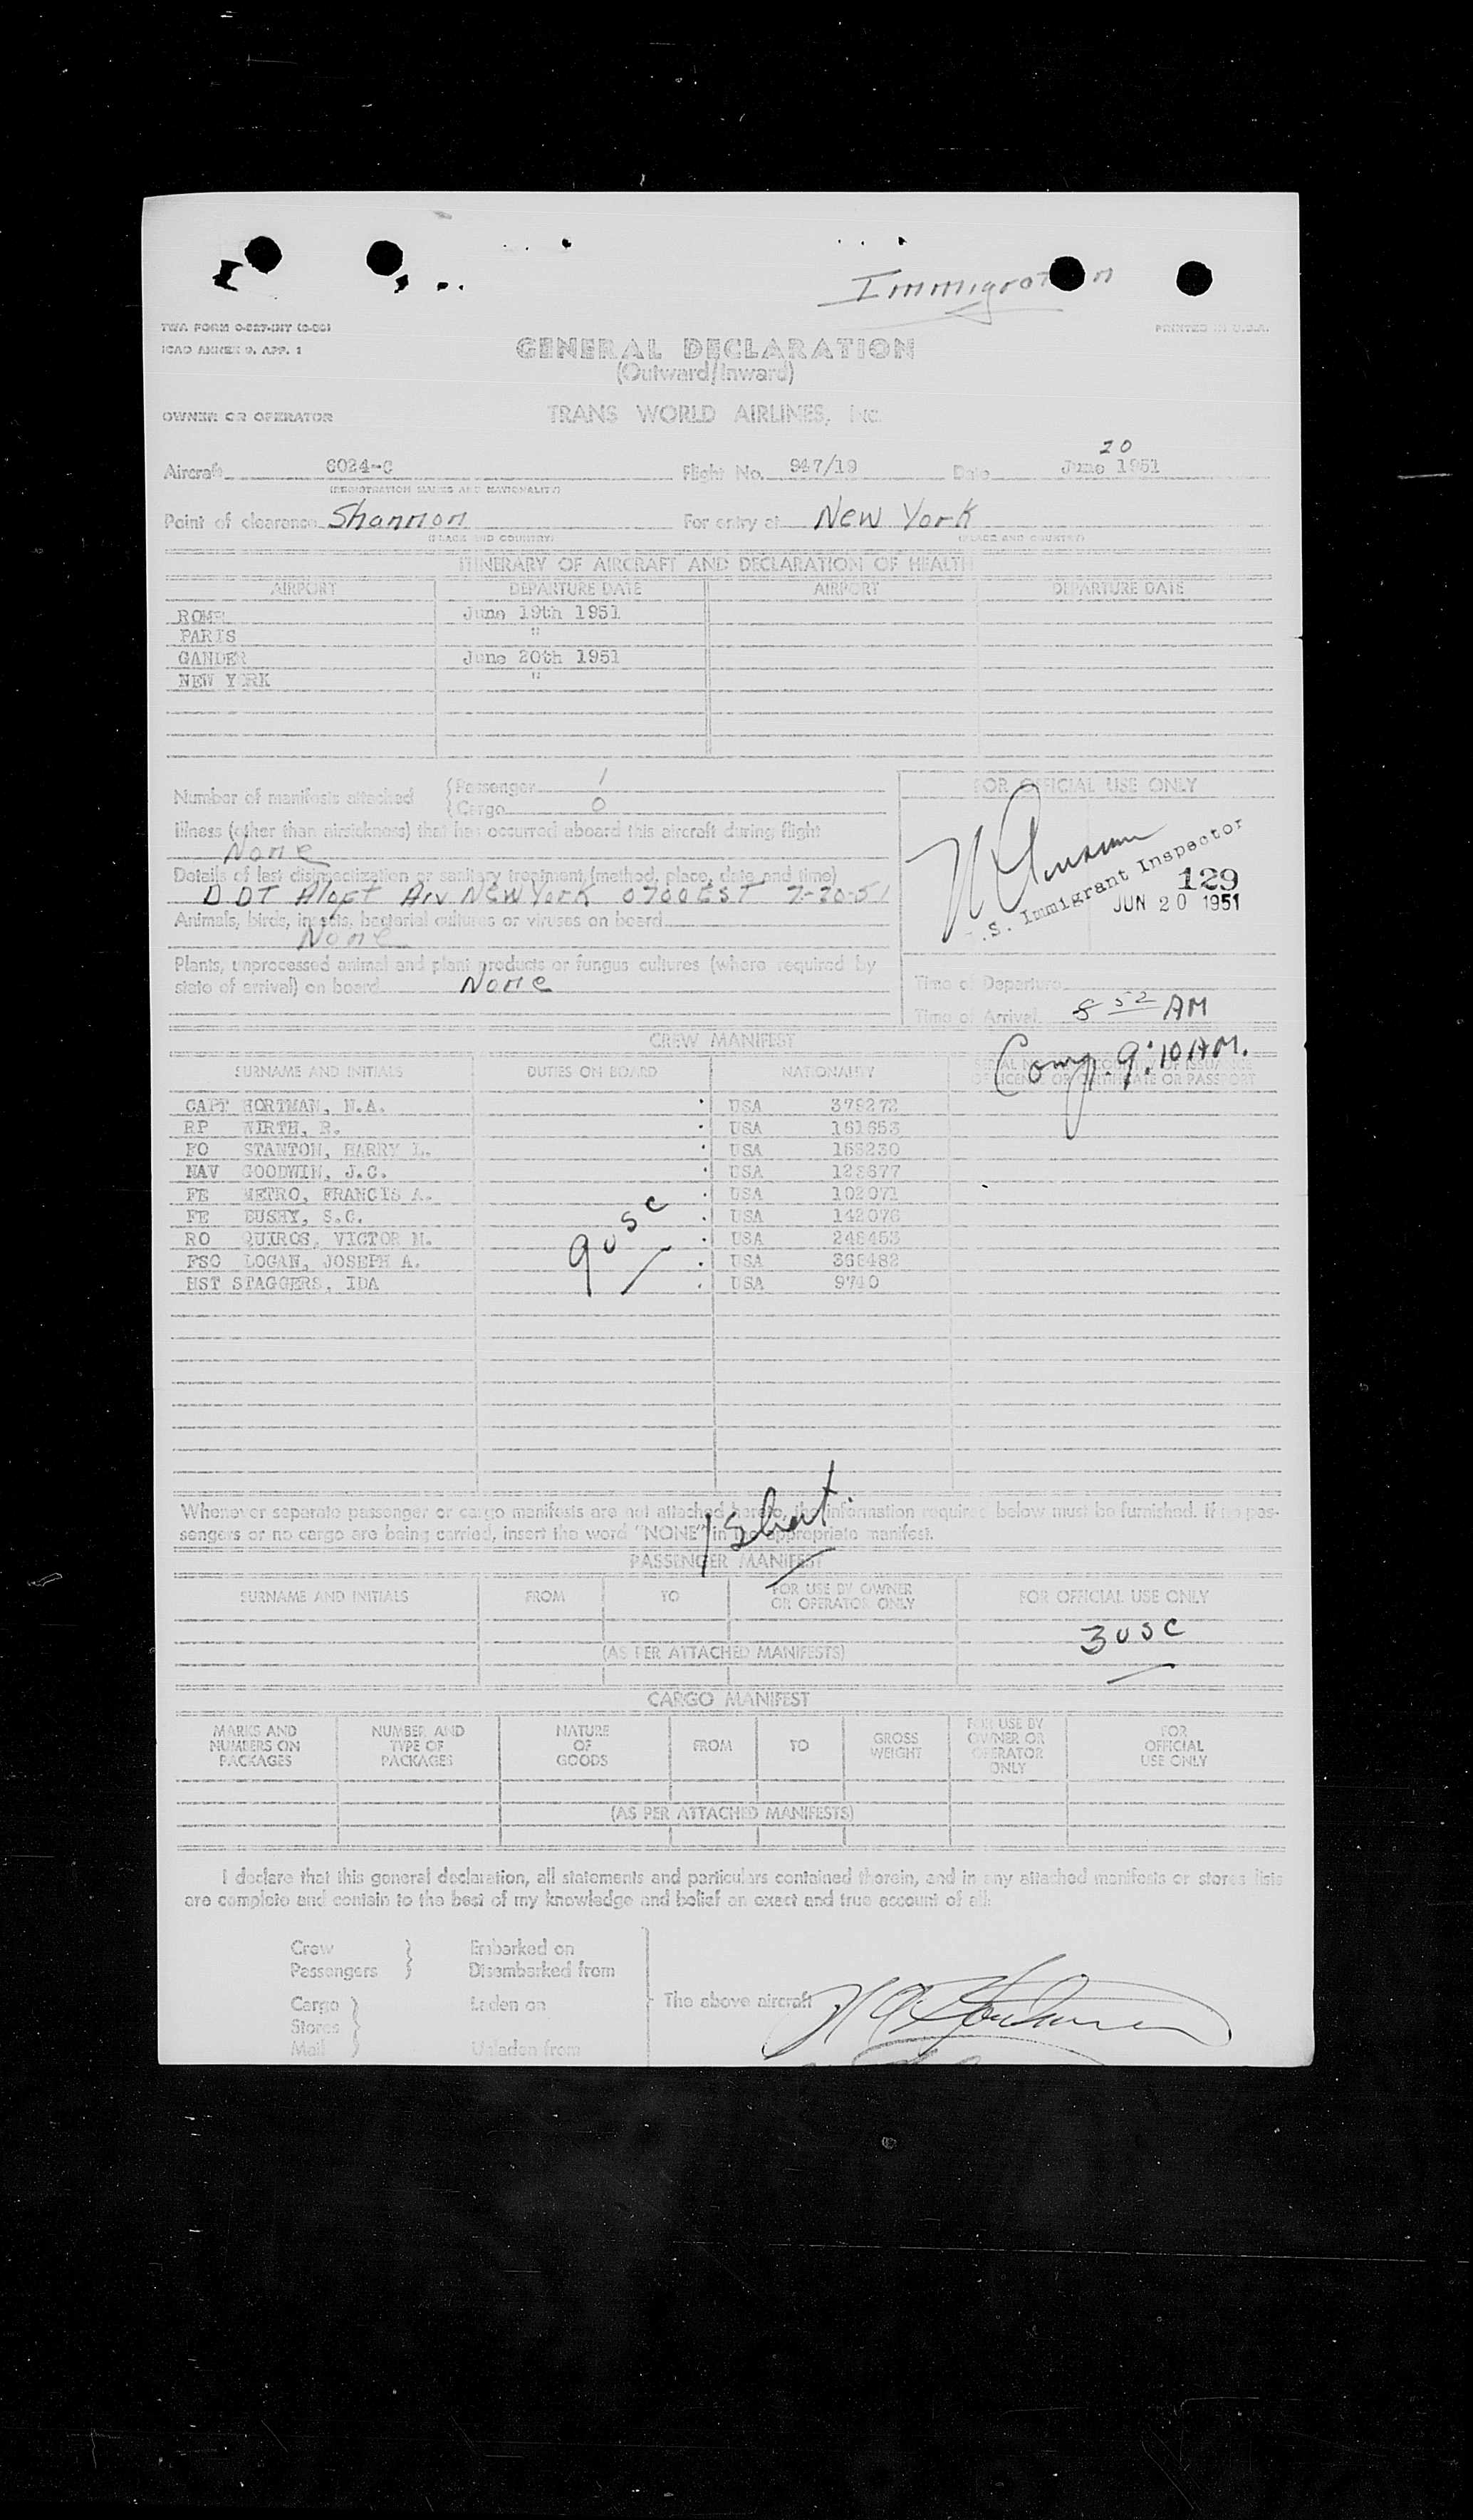 Immigration
TWA FORM O-227-INT (2-50)
PRINTED IN U.S.A.
ICAO ANNEX 9, APP. 1
GENERAL DECLARATION
(Outward/Inward)
OWNER OR OPERATOR TRANS WORLD AIRLINES, Inc.
20
Aircraft 6024-C Flight No. 947/19 Date June 1951
(REGISTRATION MARKS AND NATIONALITY)
Point of clearance Shannon For entry at New York
(PLACE AND COUNTRY) (PLACE AND COUNTRY)
ITINERARY OF AIRCRAFT AND DECLARATION OF HEALTH
AIRPORT DEPARTURE DATE AIRPORT DEPARTURE DATE
ROME June 19th 1951
PARIS "
GANDER June 20th 1951
NEW YORK "
Number of manifests attached { Passenger 1
{ Cargo 0
FOR OFFICIAL USE ONLY
Illness (other than airsickness) that has occurred aboard this aircraft during flight
None
Details of last disinsectization or sanitary treatment (method, place, date and time)
DDT Aloft Arv New York 0700 EST 7-20-51
Animals, birds, insects, bacterial cultures or viruses on board
None
Plants, unprocessed animal and plant products or fungus cultures (where required by
state of arrival) on board None
.S. Immigrant Inspector
129
JUN 20 1951
Time of Departure
Time of Arrival 8 52 AM
Comp. 9:10 AM.
CREW MANIFEST
SURNAME AND INITIALS DUTIES ON BOARD NATIONALITY SERIAL OF ISSUANCE
OF LICENSE OR CERTIFICATE OR PASSPORT
CAPT HORTMAN, N.A. USA 379272
RP WIRTH, R. USA 161653
FO STANTON, HARRY L. USA
NAV GOODWIN, J.C. USA
FE METRO, FRANCIS A. USA 102071
FE BUSHY, S.C. USA 142076
RO QUIROS, VICTOR M. USA
PSO LOGAN, JOSEPH A. USA
HST STAGGERS, IDA USA 9740
9 USC
Whenever separate passenger or cargo manifests are not attached hereto, the information required below must be furnished. If no pas-
sengers or no cargo are being carried, insert the word "NONE" in the appropriate manifest.
1 Sheet.
PASSENGER MANIFEST
SURNAME AND INITIALS FROM TO FOR USE BY OWNER
OR OPERATOR ONLY FOR OFFICIAL USE ONLY
3 USC
(AS PER ATTACHED MANIFESTS)
CARGO MANIFEST
MARKS AND
NUMBERS ON
PACKAGES
NUMBER AND
TYPE OF
PACKAGES
NATURE
OF
GOODS
FROM
TO
GROSS
WEIGHT
FOR USE BY
OWNER OR
OPERATOR
ONLY
FOR
OFFICIAL
USE ONLY
(AS PER ATTACHED MANIFESTS)
I declare that this general declaration, all statements and particulars contained therein, and in any attached manifests or stores lists
are complete and contain to the best of my knowledge and belief an exact and true account of all:
Crew } Embarked on
Passengers } Disembarked from
Cargo } Laden on The above aircraft
Stores }
Mail } Unladen from